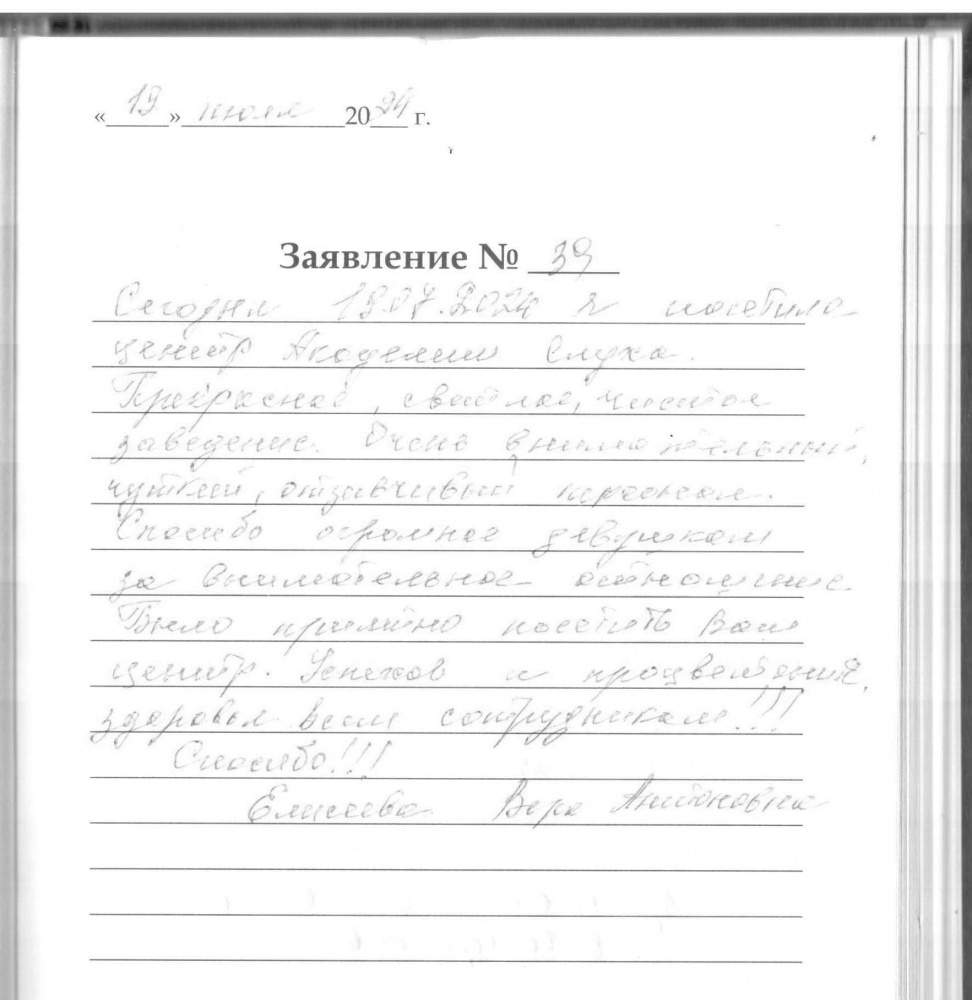 «19» июля 2024 г.
Заявление № 39
Сегодня 19.07.2024 я посетила
центр Академии Слуха.
Прекрасное, светлое, чистое
заведение. Очень внимательный,
чуткий, отзывчивый персонал.
Спасибо огромное девушкам
за внимательное отношение.
Было приятно посетить Ваш
центр. Успехов и процветания,
здоровья всем сотрудникам!!!
Спасибо!!!
Елисеева Вера Антоновна